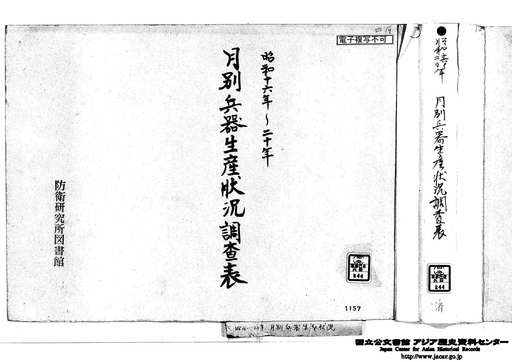 電子複写不可
昭和十六年〜二十年
月別兵器生産状況調査表
防衛研究所図書館
1157
昭和十六年
二〇年
月別兵器生産状況調査表
244
244
月別兵器生産状況
国立公文書館 アジア歴史資料センター
Japan Center for Asian Historical Records
http://www.jacar.go.jp